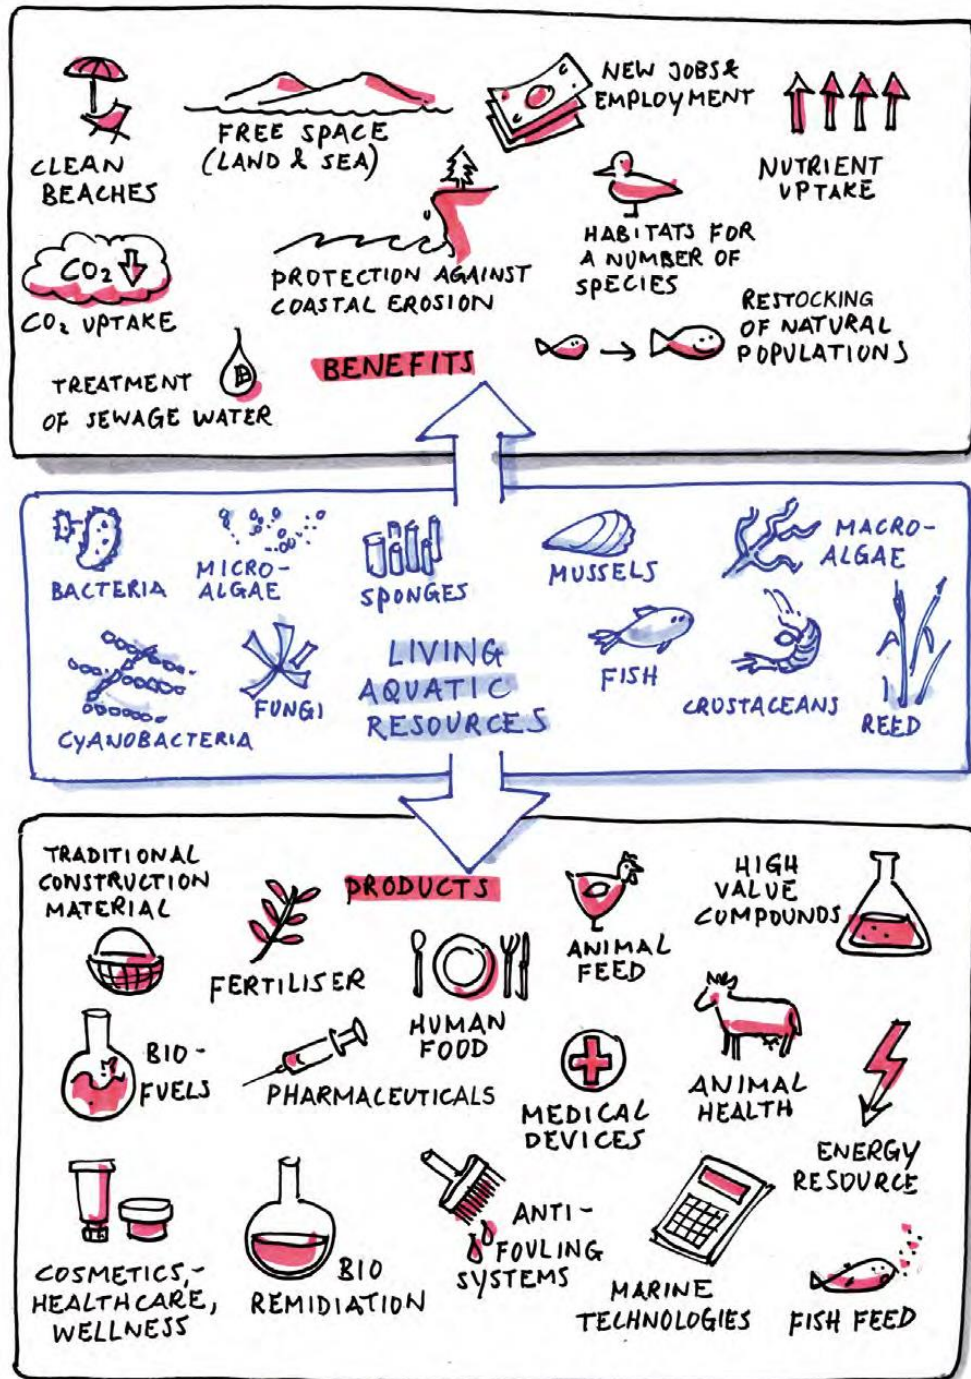 CLEAN
BEACHES
FREE SPACE
(LAND & SEA)
NEW JOBS &
EMPLOYMENT
NUTRIENT
UPTAKE
CO2
CO2 UPTAKE
PROTECTION AGAINST
COASTAL EROSION
HABITATS FOR
A NUMBER OF
SPECIES
RESTOCKING
OF NATURAL
POPULATIONS
TREATMENT
OF SEWAGE WATER
BENEFITS
BACTERIA
MICRO-
ALGAE
SPONGES
MUSSELS
MACRO-
ALGAE
CYANOBACTERIA
FUNGI
LIVING
AQUATIC
RESOURCES
FISH
CRUSTACEANS
REED
TRADITIONAL
CONSTRUCTION
MATERIAL
PRODUCTS
FERTILISER
HUMAN
FOOD
ANIMAL
FEED
HIGH
VALUE
COMPOUNDS
BIO-
FUELS
PHARMACEUTICALS
MEDICAL
DEVICES
ANIMAL
HEALTH
ENERGY
RESOURCE
COSMETICS,-
HEALTHCARE,
WELLNESS
BIO
REMIDIATION
ANTI-
FOULING
SYSTEMS
MARINE
TECHNOLOGIES
FISH FEED